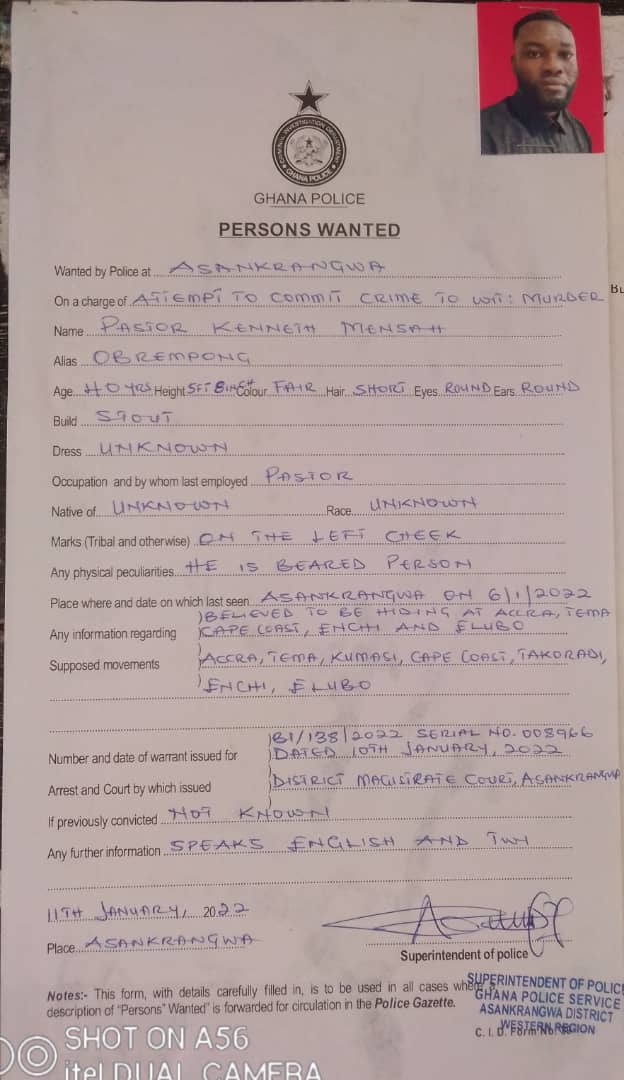 CRIMINAL INVESTIGATION DEPARTMENT
GHANA POLICE
GHANA POLICE
PERSONS WANTED
Wanted by Police at ASANKRANGWA
On a charge of ATTEMPT TO COMMIT CRIME TO WIT: MURDER
Name PASTOR KENNETH MENSAH
Alias OBREMPONG
Age 40 YRS Height 5FT 8INCH Colour FAIR Hair SHORT Eyes ROUND Ears ROUND
Build STOUT
Dress UNKNOWN
Occupation and by whom last employed PASTOR
Native of UNKNOWN Race UNKNOWN
Marks (Tribal and otherwise) ON THE LEFT CHEEK
Any physical peculiarities HE IS BEARED PERSON
Place where and date on which last seen ASANKRANGWA ON 6/1/2022
BELIEVED TO BE HIDING AT ACCRA, TEMA
Any information regarding CAPE COAST, ENCHI AND ELUBO
Supposed movements ACCRA, TEMA, KUMASI, CAPE COAST, TAKORADI,
ENCHI, ELUBO
B1/138/2022 SERIAL NO. 008966
Number and date of warrant issued for DATED 10TH JANUARY, 2022
Arrest and Court by which issued DISTRICT MAGISTRATE COURT, ASANKRANGWA
If previously convicted NOT KNOWN
Any further information SPEAKS ENGLISH AND TWI
11TH JANUARY, 2022
Place ASANKRANGWA
Superintendent of police
Notes:- This form, with details carefully filled in, is to be used in all cases where
description of "Persons" Wanted" is forwarded for circulation in the Police Gazette.
SUPERINTENDENT OF POLICE
GHANA POLICE SERVICE
ASANKRANGWA DISTRICT
WESTERN REGION
C. I. D. Form No.
SHOT ON A56
itel DUAL CAMERA